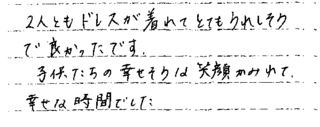 2人ともドレスが着れてとてもうれしそう
で良かったです。
子供たちの幸せそうな笑顔がみれて、
幸せな時間でした